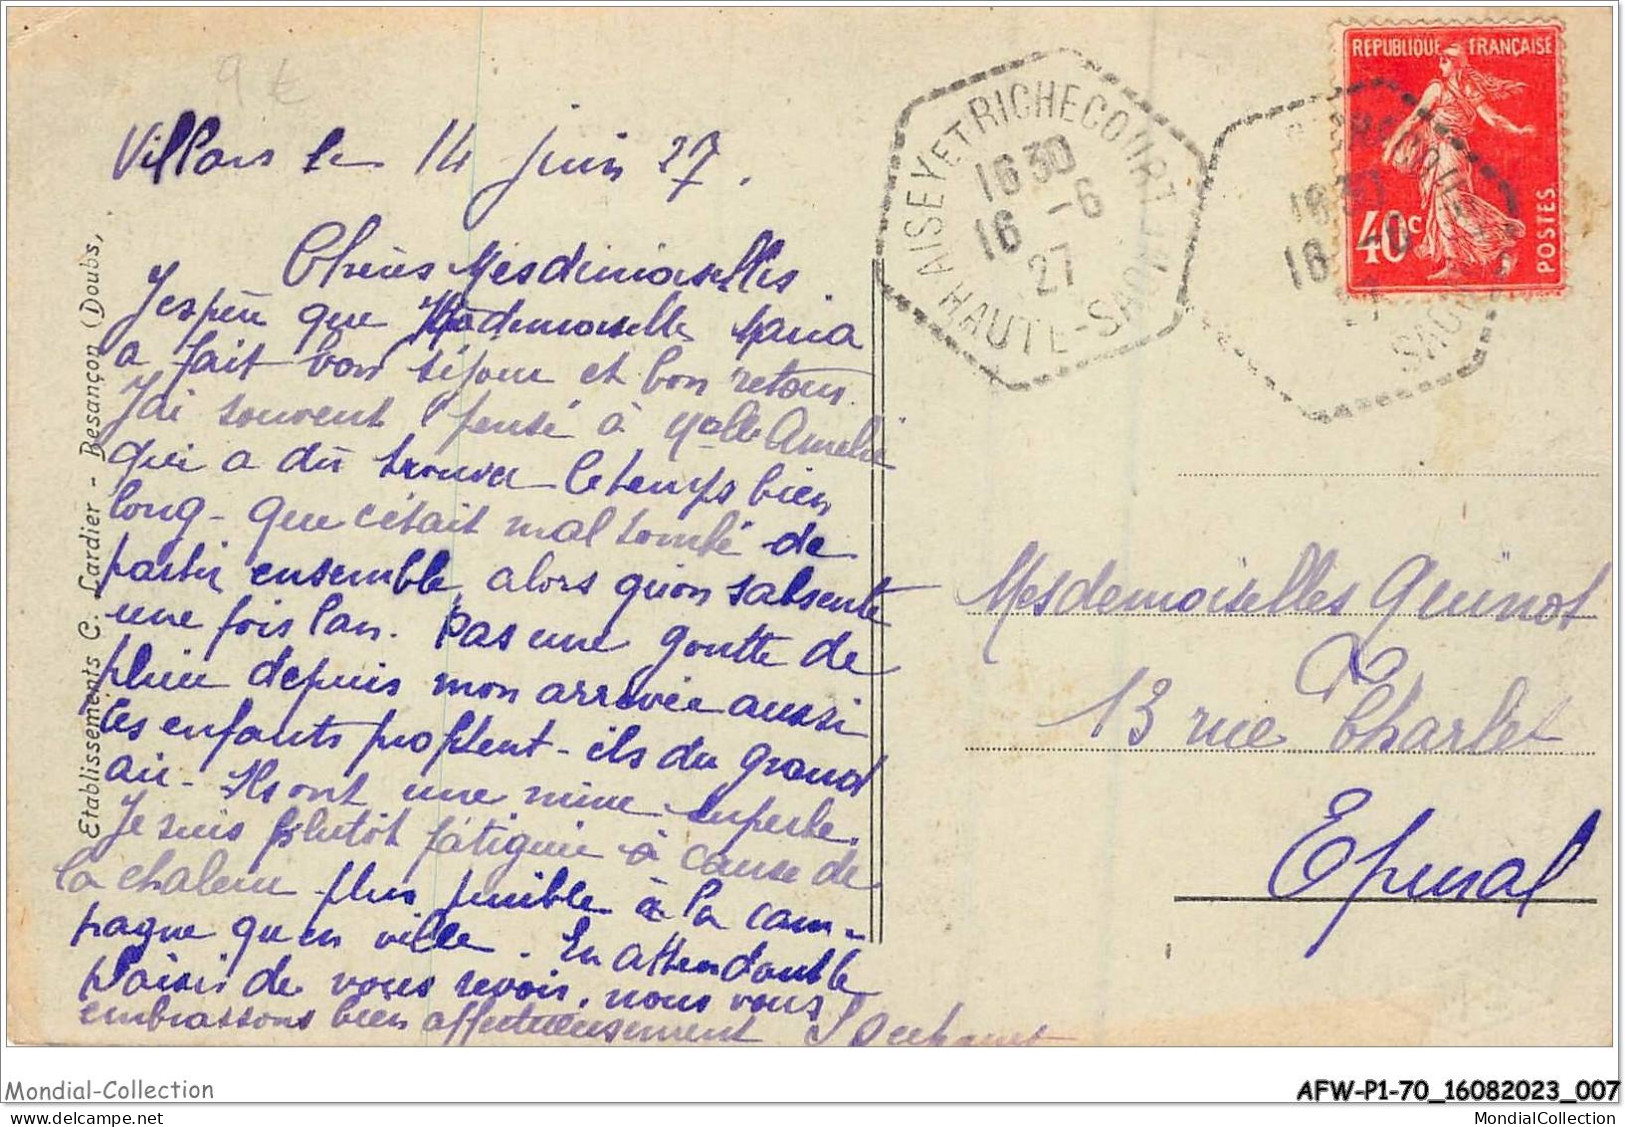 9 €
Villars le 14 juin 27.
Chères Mesdemoiselles
J'espère que Mademoiselle Maria
a fait bon séjour et bon retour.
J'ai souvent pensé à Melle Amélie
qui a dû trouver le temps bien
long - que c'était mal tombé de
partir ensemble, alors qu'on s'absente
une fois l'an. Pas une goutte de
pluie depuis mon arrivée aussi
les enfants profitent - ils du grand
air - Ils ont une mine superbe.
Je suis plutôt fatiguée à cause de
la chaleur plus pénible à la cam-
pagne qu'en ville. En attendant le
plaisir de vous revoir, nous vous
embrassons bien affectueusement
Etablissements C. Lardier - Besançon (Doubs)
AISEY ET RICHECOURT
16 30
16 -6
27
HAUTE-SAONE
REPUBLIQUE FRANÇAISE
40c
POSTES
16 30
16
SAONE
Mesdemoiselles Guinot
13 rue Charlet
Epinal
Mondial-Collection
AFW-P1-70_16082023_007
MondialCollection